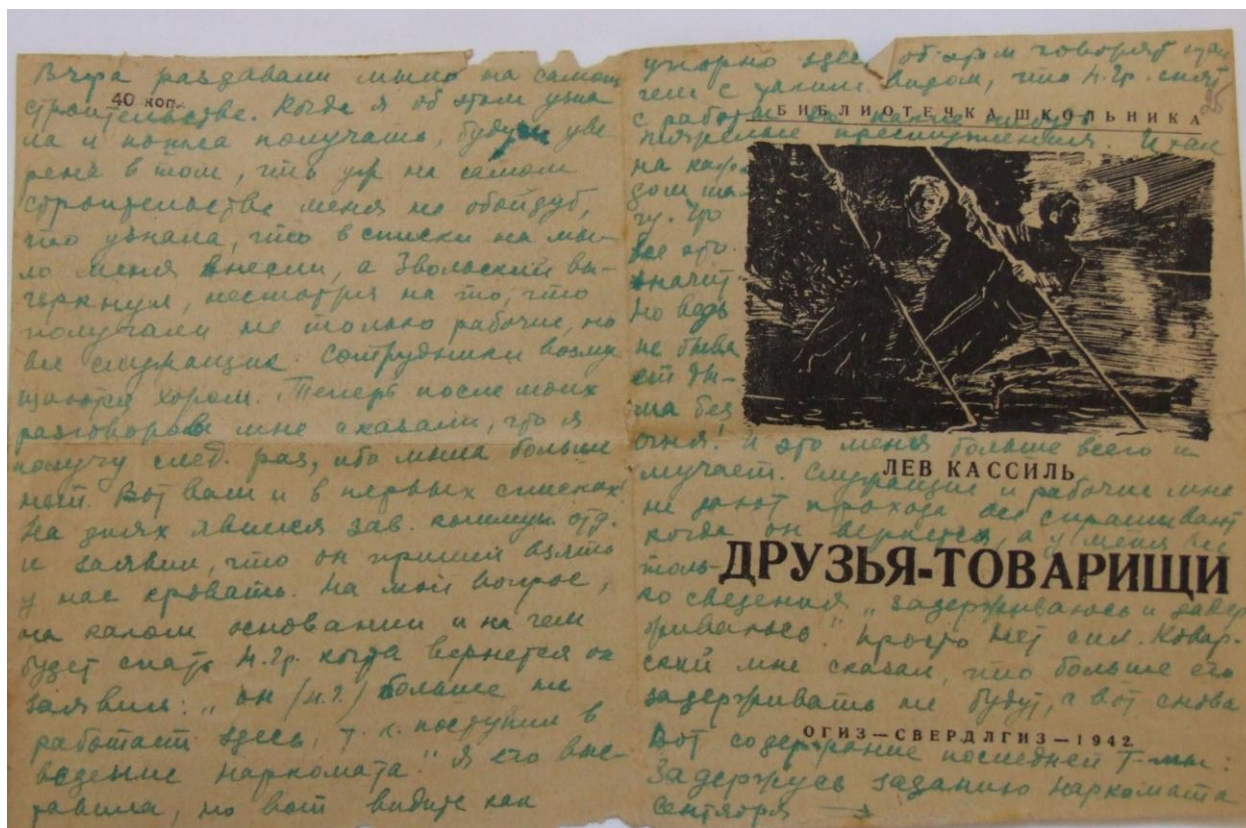 Вчера раздавали мыло на самом
40 коп.
строительстве. Когда я об этом узна
ла и пошла получать, будучи уве
рена в том, что уж на самом
строительстве меня не обойдут,
то узнала, что в списки на мы-
ло меня внесли, а Звольский вы-
черкнул, несмотря на то, что
получали не только рабочие, но
все служащие. Сотрудники возму
щаются хором. Теперь после моих
разговоров мне сказали, что я
получу след. раз, ибо мыла больше
нет. Вот вам и в первых списках!
На днях явился зав. коммун. отд.
и заявил, что он пришел взять
у нас кровать. На мой вопрос,
на каком основании и на чем
будет спать Н.Гр. когда вернется он
заявил: „он (Н.Г.) больше не
работает здесь, т.к. поступил в
ведение наркомата." Я его вы-
равила, но вот видите как
упорно здесь об этом говорят
чем с таким видом, что Н.Гр. снят
с работы за какие
БИБЛИОТЕЧКА ШКОЛЬНИКА
преступления. И так
на каж-
дом ша-
гу. Что
все это
значит
Но ведь
не быва
ет ды-
ма без
огня! И это меня больше всего и
ЛЕВ КАССИЛЬ
мучает. Служащие и рабочие мне
не дают прохода все спрашивают
когда он вернется, а у меня
толь-
ДРУЗЬЯ-ТОВАРИЩИ
ко сведения „задерживаюсь и задер
живаюсь." Просто нет сил. Ковар-
ский мне сказал, что больше его
задерживать не будут, а вот снова
ОГИЗ—СВЕРДЛГИЗ—1942
Вот содержание последней Т-мы:
Задержусь заданию наркомата
сентября →